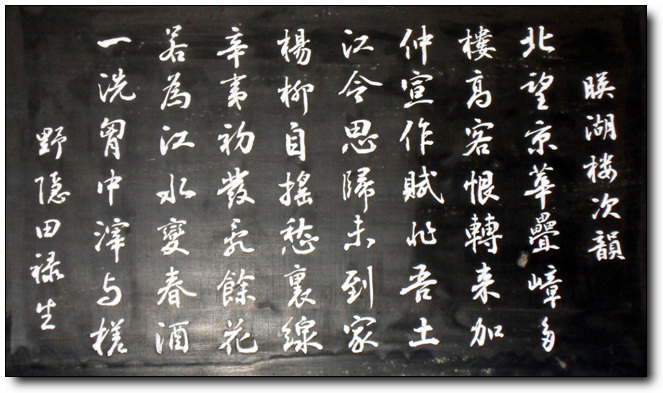 暎湖楼次韻
北望京華疊嶂多
樓高客恨轉来加
仲宣作賦非吾土
江令思歸未到家
楊柳自搖愁裏線
辛夷初發乱餘花
若為江水變春酒
一洗胷中滓与槎
野隠田禄生